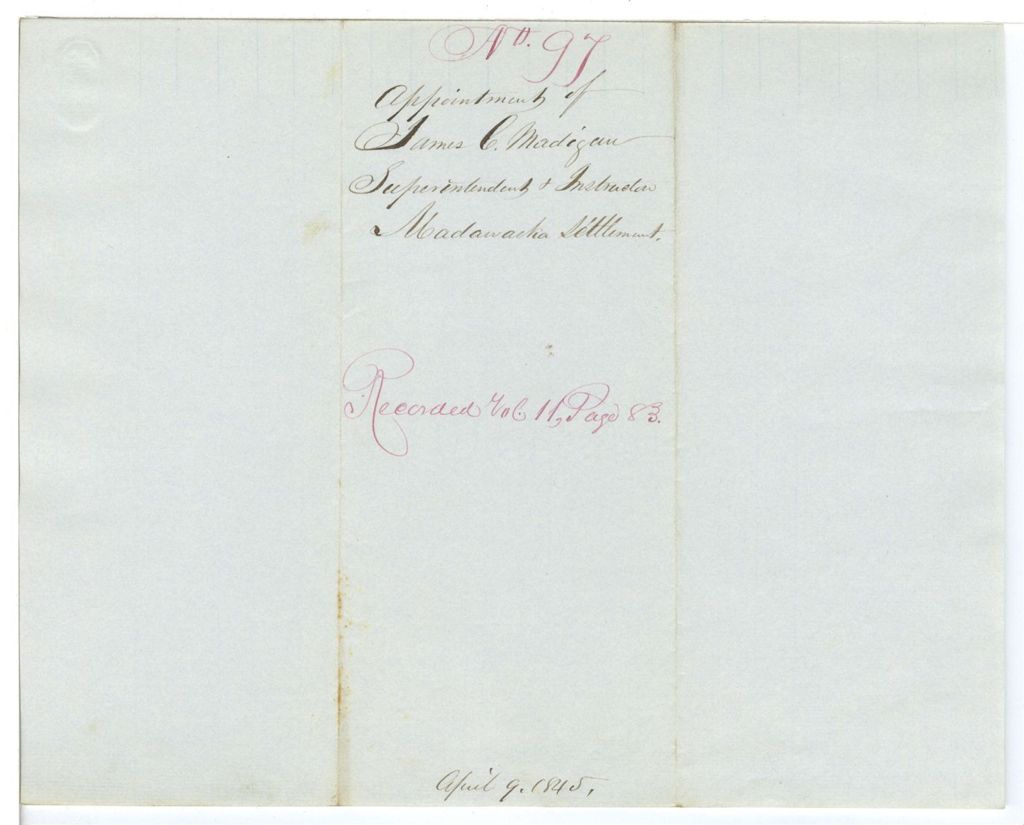 No. 97
Appointment of
James C. Madigan
Superintendent & Instructor
Madawaska Settlement.
Recorded Vol. 11, Page 83.
April 9. 1845.